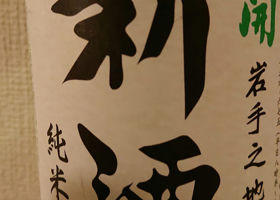 開
岩手之地
新酒
純米